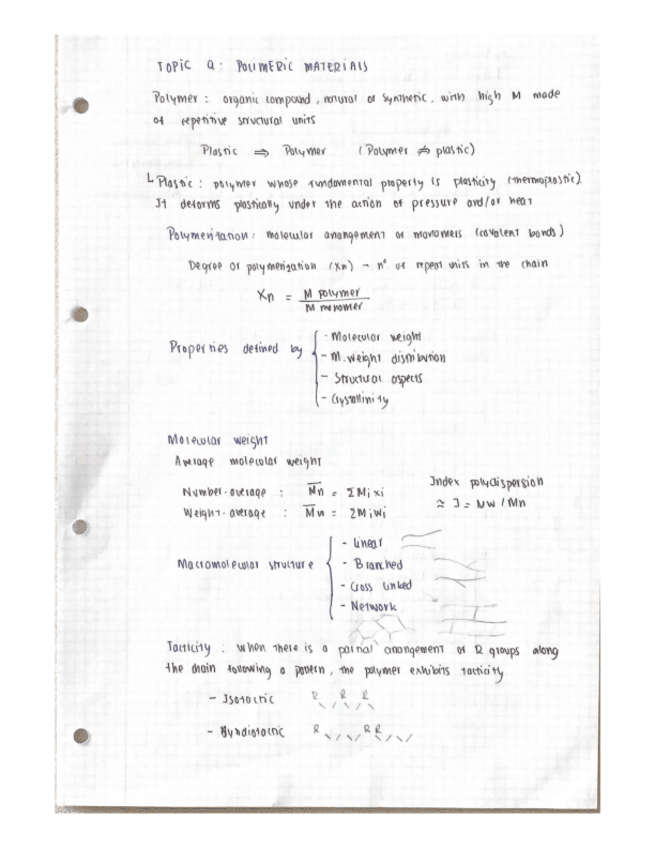 TOPIC 9: POLIMERIC MATERIALS
Polymer: organic compound, natural or synthetic, with high M made
of repetitive structural units
Plastic ⇒ Polymer (Polymer ⇏ plastic)
↳ Plastic: polymer whose fundamental property is plasticity (thermoplastic).
It deforms plastically under the action of pressure and/or heat
Polymerization: molecular arrangement of monomers (covalent bonds)
Degree of polymerization (Xn) → nº of repeat units in the chain
Xn = M polymer / M monomer
Properties defined by
- Molecular weight
- M. weight distribution
- Structural aspects
- Crystallinity
Molecular weight
Average molecular weight
Number-average: Mn = ΣMixi
Weight-average: Mw = ΣMiWi
Index polydispersion
≈ I = Mw / Mn
Macromolecular structure
- Linear
- Branched
- Cross linked
- Network
Tacticity: when there is a partial arrangement of R groups along
the chain following a pattern, the polymer exhibits tacticity
- Isotactic R R R
- Syndiotactic R R R